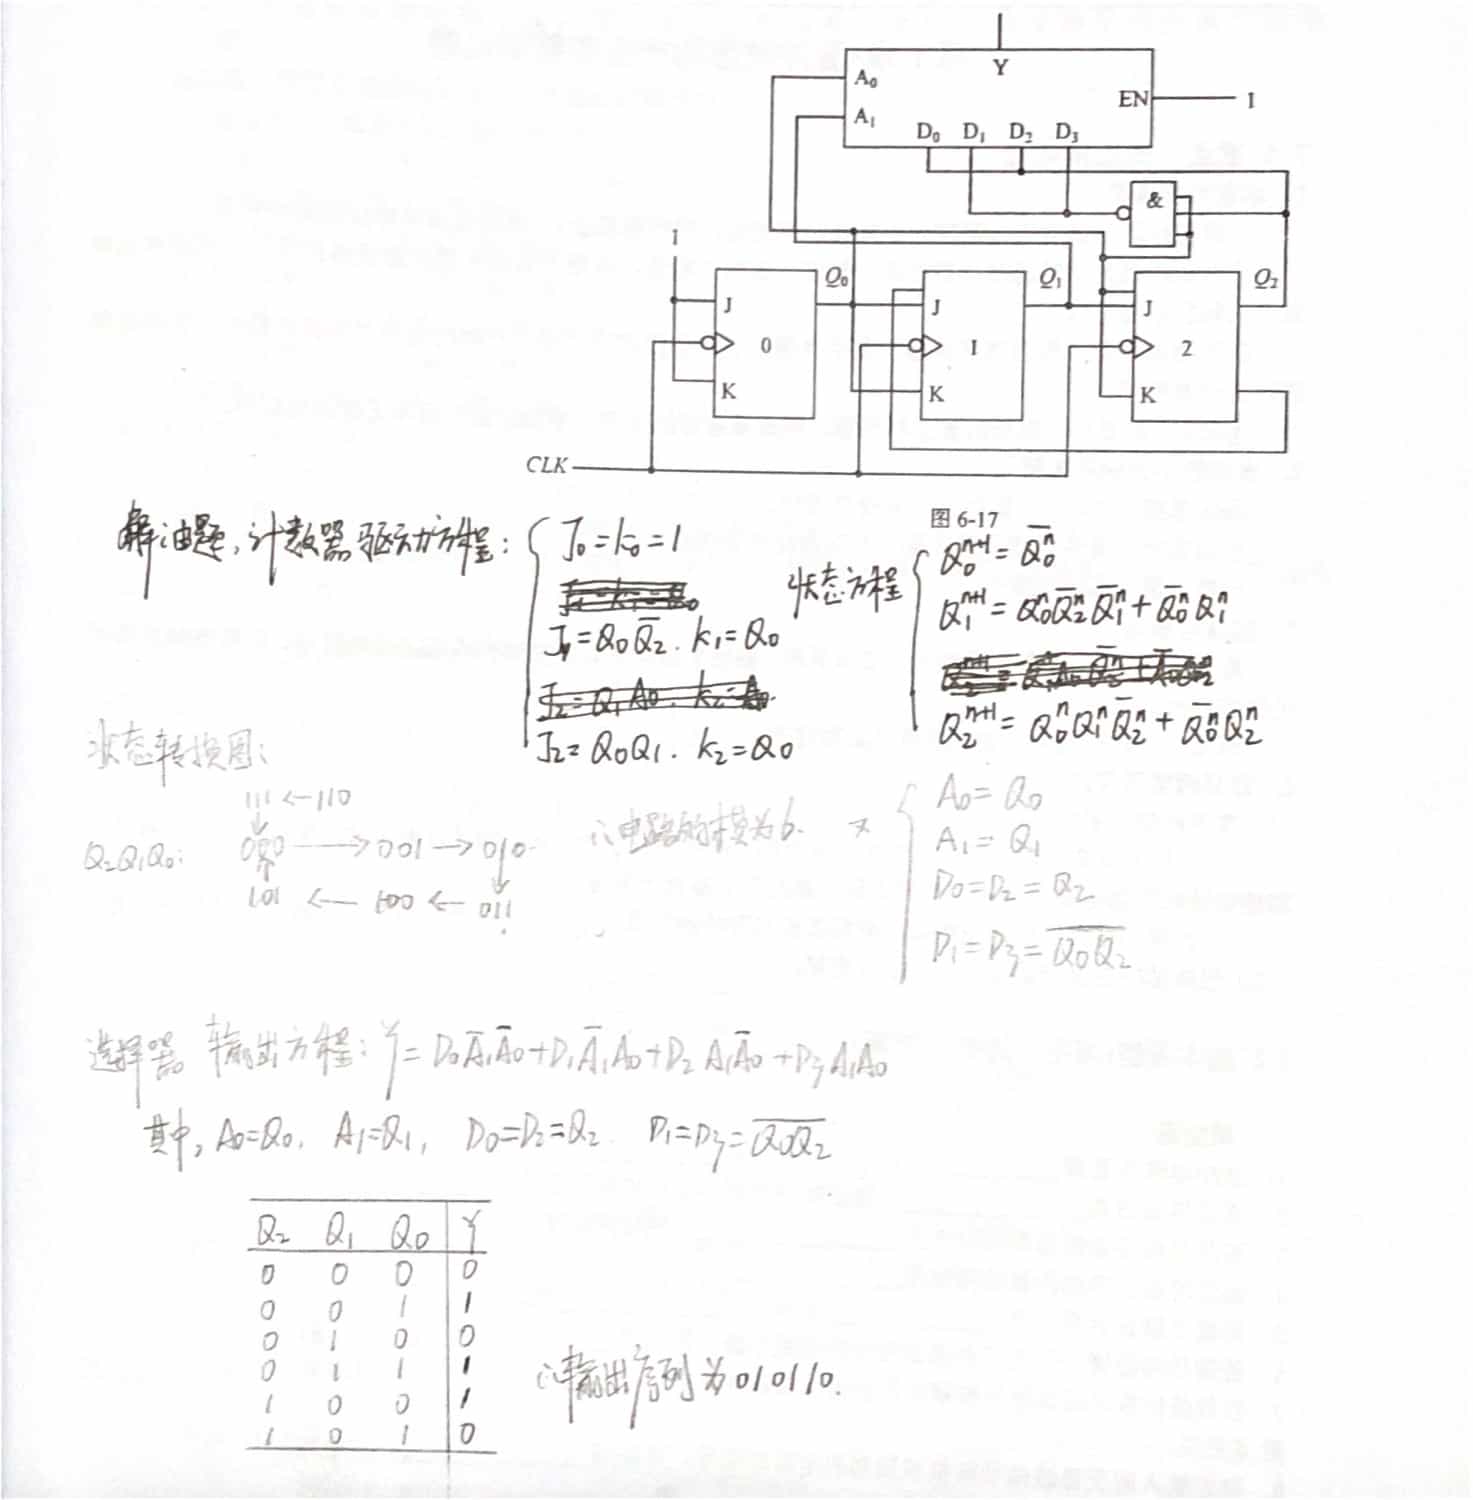 Y
A₀
EN 1
A₁
D₀ D₁ D₂ D₃
&
1
Q₀ Q₁ Q₂
J J J
0 1 2
K K K
CLK
图 6-17
解:由题,计数器驱动方程:
J₀=k₀=1
J₁=Q₀Q̅₂. k₁=Q₀
J₂=Q₀Q₁. k₂=Q₀
状态方程
Q₀ⁿ⁺¹=Q̅₀ⁿ
Q₁ⁿ⁺¹=Q₀ⁿQ̅₂ⁿQ̅₁ⁿ+Q̅₀ⁿQ₁ⁿ
Q₂ⁿ⁺¹=Q₀ⁿQ₁ⁿQ̅₂ⁿ+Q̅₀ⁿQ₂ⁿ
状态转换图:
111←110
↓
Q₂Q₁Q₀: 000→001→010
↑ ↓
101←100←011
∴电路的模为6. 又
A₀=Q₀
A₁=Q₁
D₀=D₂=Q₂
D₁=D₃=\overline{Q₀Q₂}
选择器 输出方程:Y=D₀A̅₁A̅₀+D₁A̅₁A₀+D₂A₁A̅₀+D₃A₁A₀
其中, A₀=Q₀, A₁=Q₁, D₀=D₂=Q₂ D₁=D₃=\overline{Q₀Q₂}
Q₂ Q₁ Q₀ Y
0 0 0 0
0 0 1 1
0 1 0 0
0 1 1 1
1 0 0 1
1 0 1 0
∴输出序列为010110.